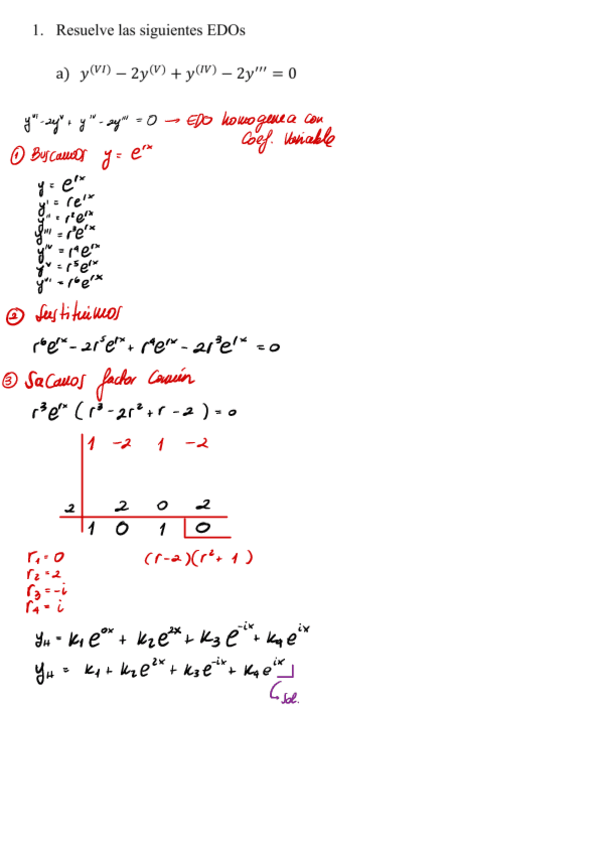 1. Resuelve las siguientes EDOs
a) y^(VI) − 2y^(V) + y^(IV) − 2y''' = 0
y^VI - 2y^V + y^IV - 2y''' = 0 → EDO homogenea con
Coef. Variable
① Buscamos y = e^rx
y = e^rx
y' = re^rx
y'' = r²e^rx
y''' = r³e^rx
y^IV = r⁴e^rx
y^V = r⁵e^rx
y^VI = r⁶e^rx
② Sustituimos
r⁶e^rx - 2r⁵e^rx + r⁴e^rx - 2r³e^rx = 0
③ Sacamos factor Común
r³e^rx (r³ - 2r² + r - 2) = 0
1 -2 1 -2
2 2 0 2
1 0 1 0
r₁ = 0 (r-2)(r²+1)
r₂ = 2
r₃ = -i
r₄ = i
y_H = K₁e^0x + K₂e^2x + K₃e^-ix + K₄e^ix
y_H = K₁ + K₂e^2x + K₃e^-ix + K₄e^ix
Sol.